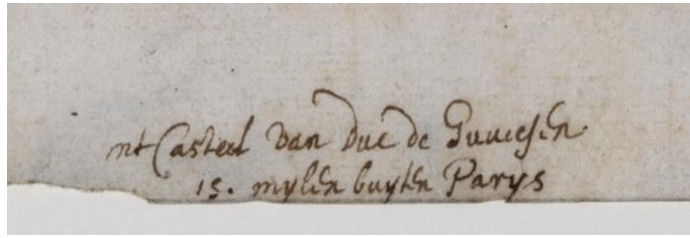 nt Casteel van Duc de Guuiesen
15. mylen buyten Parys